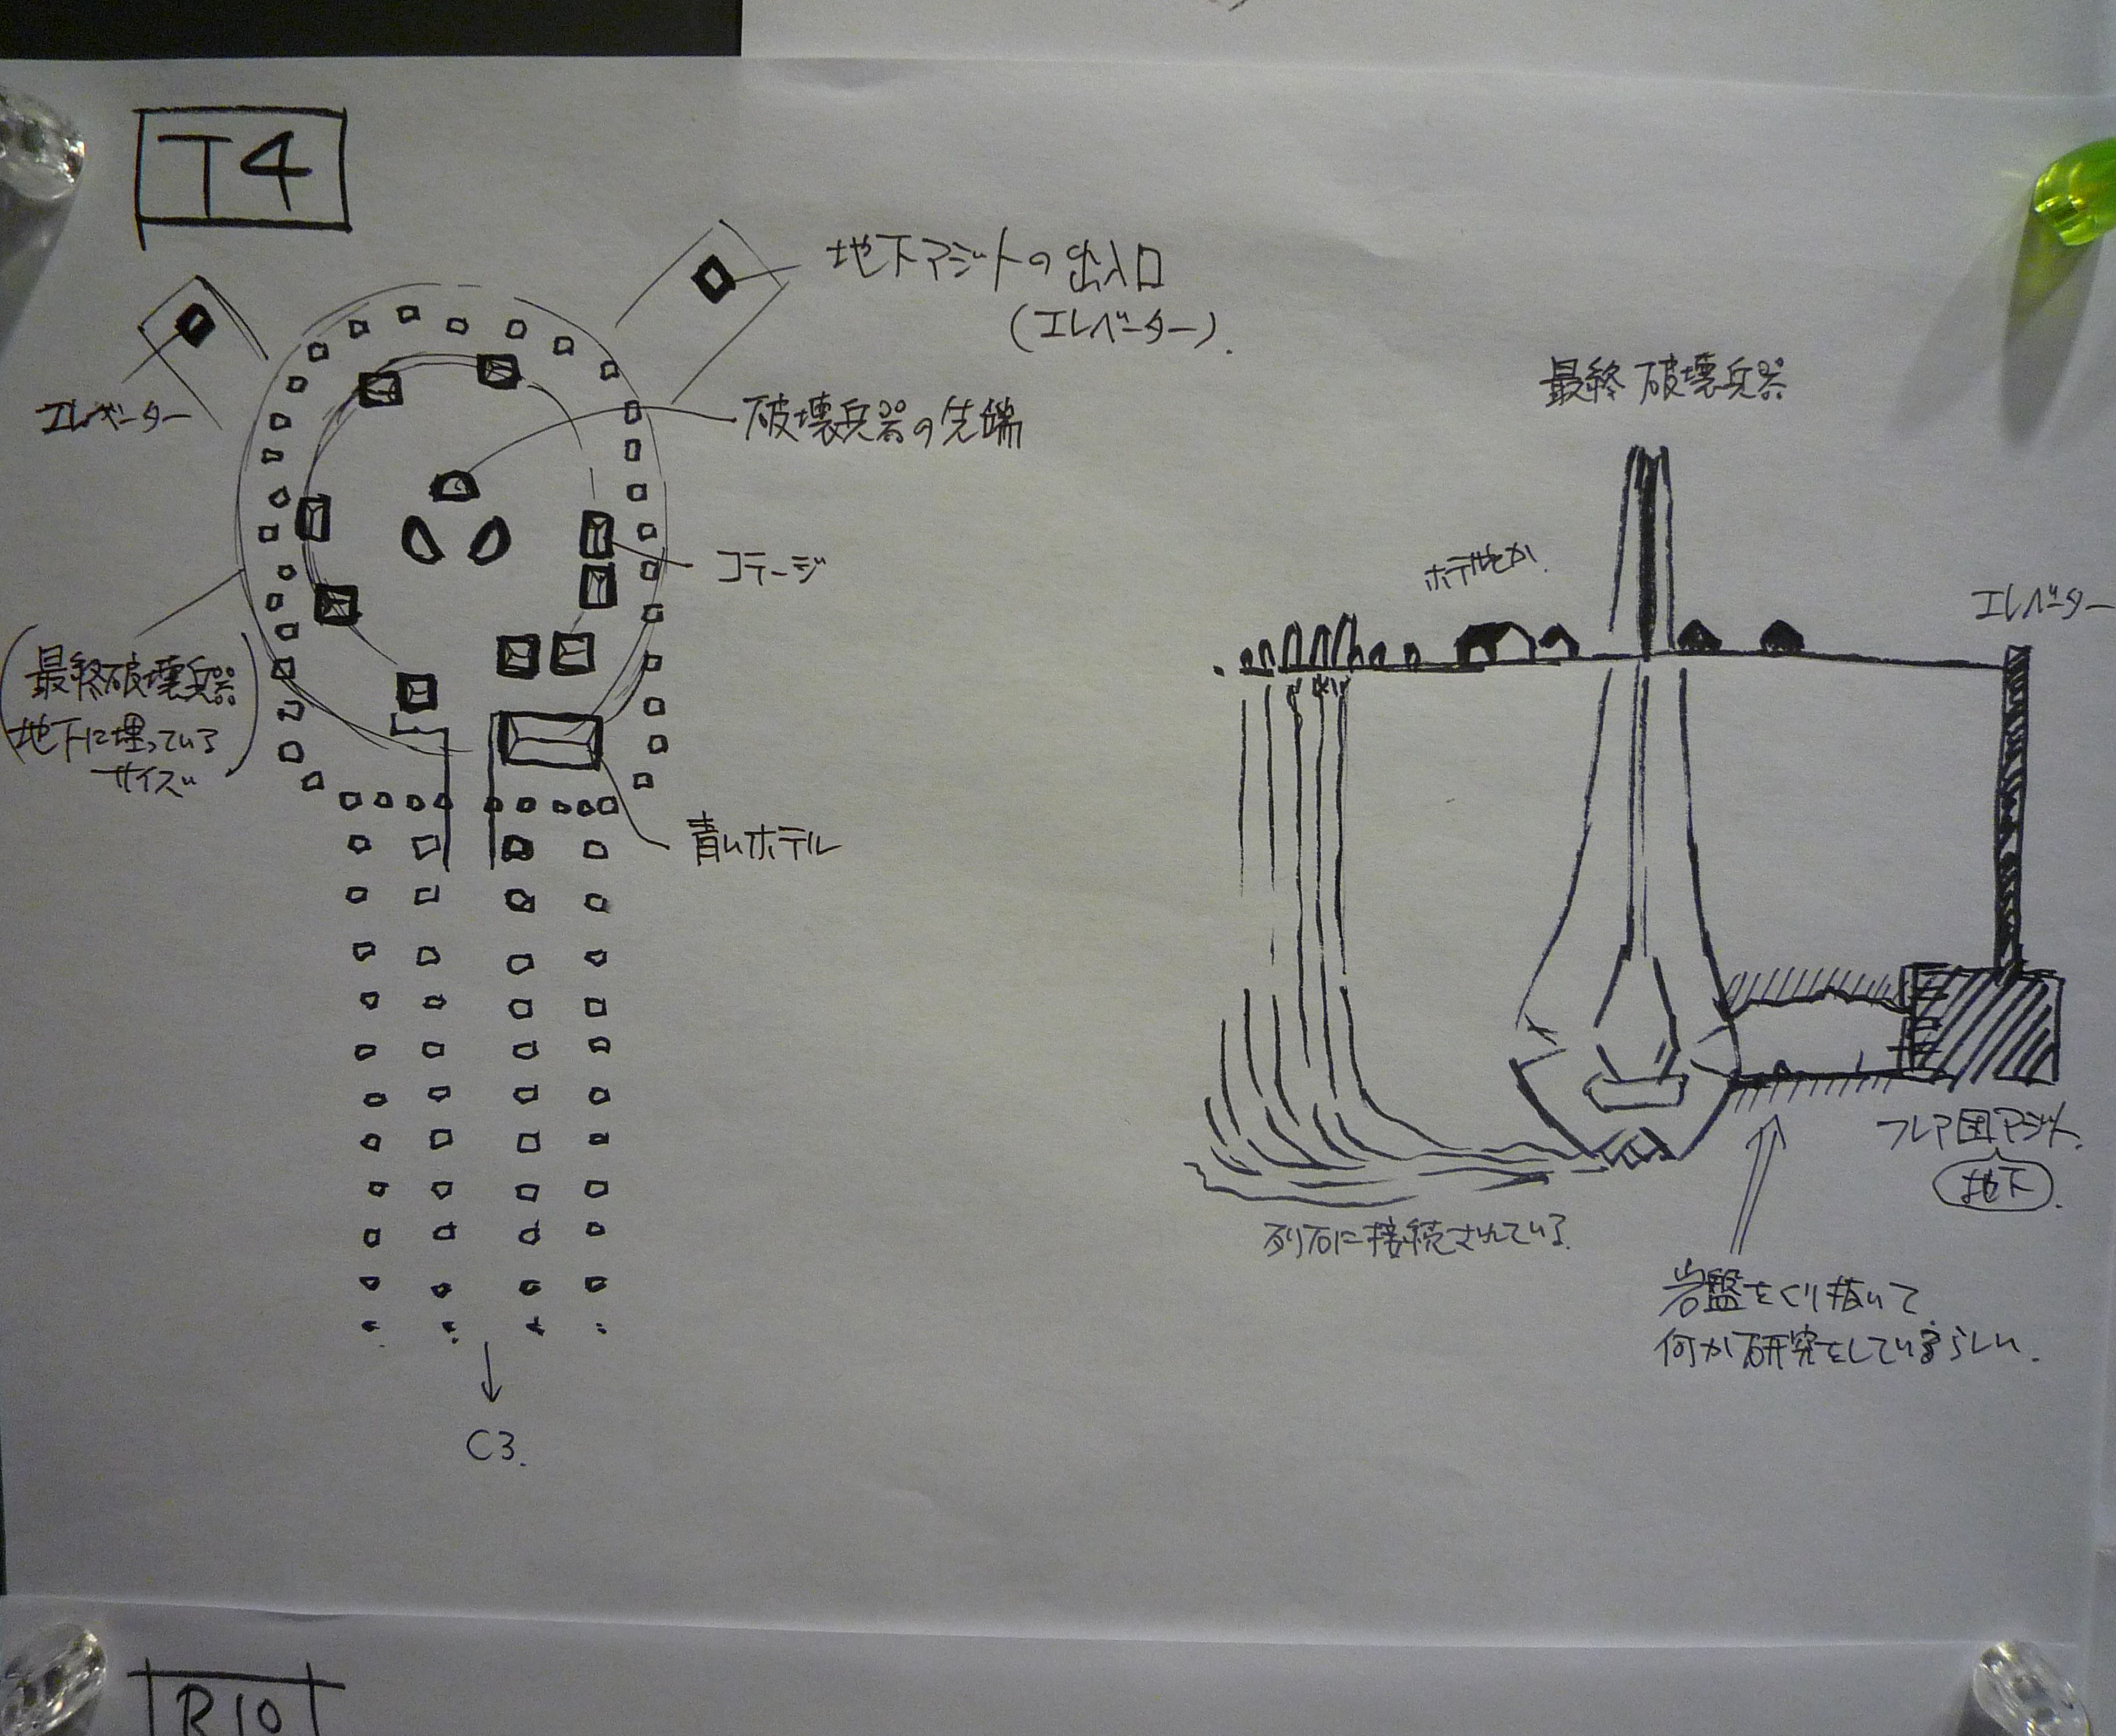 T4
地下アジトの出入口
(エレベーター).
エレベーター
破壊兵器の先端
コテージ
最終破壊兵器
地下に埋っている
サイズ
青いホテル
C3.
最終破壊兵器
ホテルとか.
エレベーター
フレア団アジト.
地下.
列石に接続されている.
岩盤をくり抜いて
何か研究をしているらしい.
R10